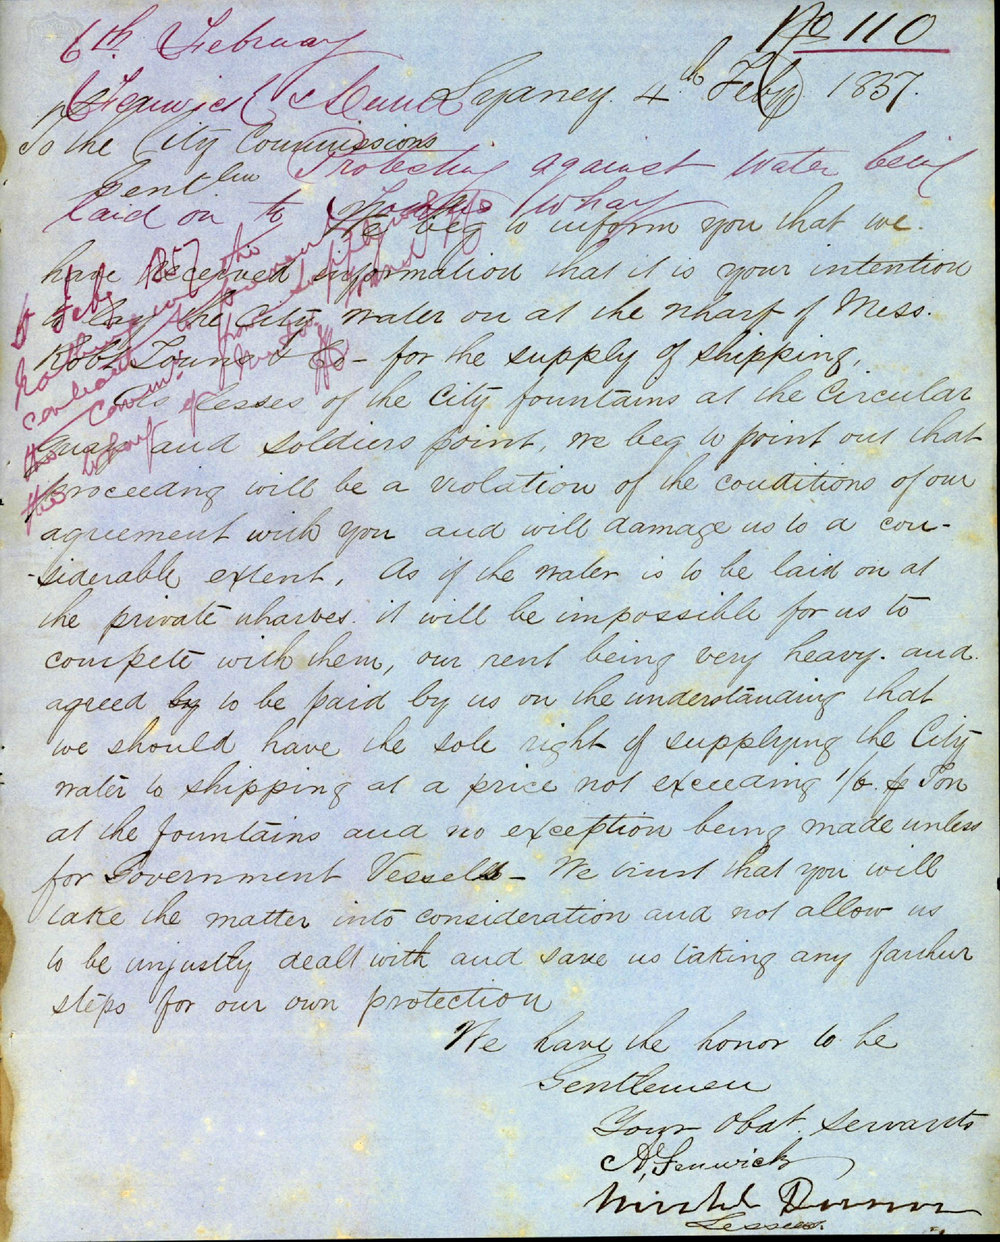 No 110
6th February
Fenwick &
Sydney. 4th Feby 1857.
To the City Commissions
Protesting against water being
Gentlm
laid on to Towns Wharf
We beg to inform you that we
have received information that it is your intention
to lay the City water on at the wharf of Mess.
Robt Towns & Co - for the supply of shipping.
As lesses of the City fountains at the Circular
Quay and Soldiers point, we beg to point out that
proceeding will be a violation of the conditions of our
agreement with you and will damage us to a con-
-siderable extent. As if the water is to be laid on at
the private wharves. it will be impossible for us to
compete with them, our rent being very heavy. and
agreed by to be paid by us on the understanding that
we should have the sole right of supplying the City
water to shipping at a price not exceeding 1/6 p Ton
at the fountains and no exception being made unless
for Government Vessels - We trust that you will
take the matter into consideration and not allow us
to be unjustly dealt with and save us taking any farther
steps for our own protection
We have the honor to be
Gentlemen
Your Obdt. Servants
A. Fenwick
Lessees.
Feby 1857
Nothing in the
contract to prevent
the Comm. from supplying water
the wharf of